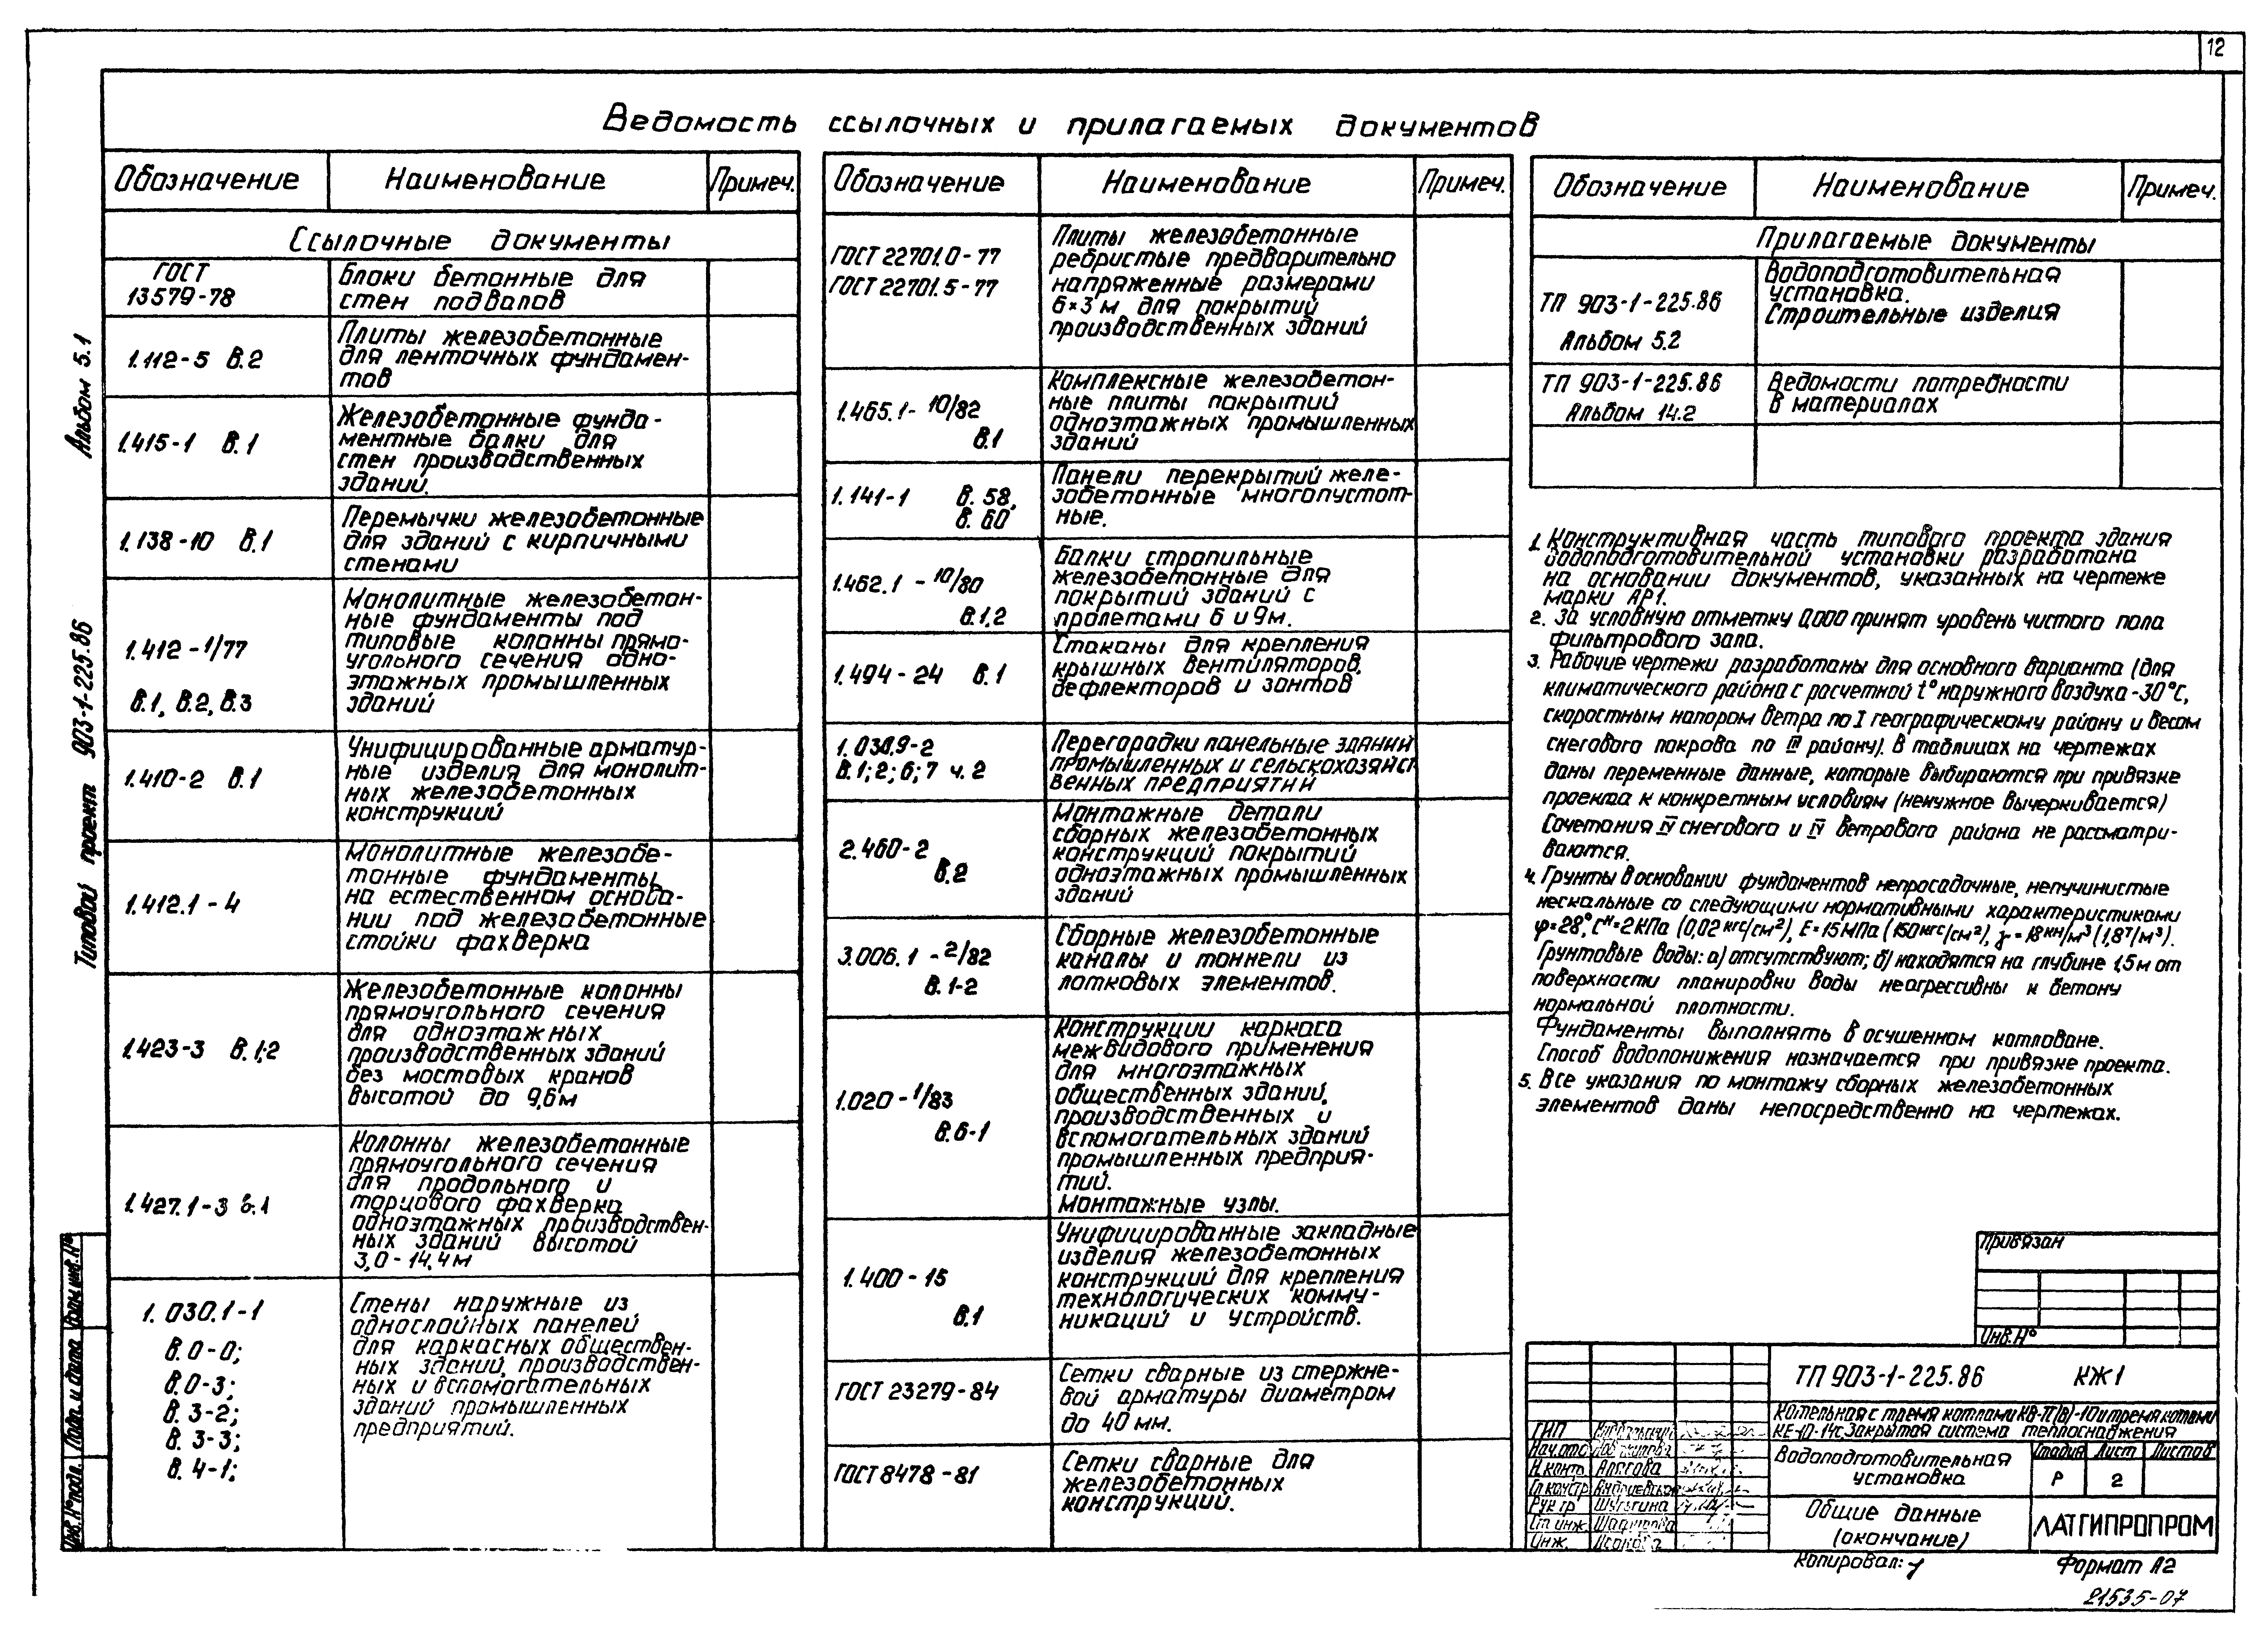 12
Ведомость ссылочных и прилагаемых документов
Обозначение Наименование Примеч.
Ссылочные документы
ГОСТ
13579-78
Блоки бетонные для
стен подвалов
1.112-5 В.2
Плиты железобетонные
для ленточных фундамен-
тов
1.415-1 В.1
Железобетонные фунда-
ментные балки для
стен производственных
зданий.
1.138-10 В.1
Перемычки железобетонные
для зданий с кирпичными
стенами
1.412-1/77
В.1, В.2, В.3
Монолитные железобетон-
ные фундаменты под
типовые колонны прямо-
угольного сечения одно-
этажных промышленных
зданий
1.410-2 В.1
Унифицированные арматур-
ные изделия для монолит-
ных железобетонных
конструкций
1.412.1-4
Монолитные железобе-
тонные фундаменты
на естественном основа-
нии под железобетонные
стойки фахверка
1.423-3 В.1;2
Железобетонные колонны
прямоугольного сечения
для одноэтажных
производственных зданий
без мостовых кранов
высотой до 9,6м
1.427.1-3 в.1
Колонны железобетонные
прямоугольного сечения
для продольного и
торцового фахверка
одноэтажных производствен-
ных зданий высотой
3,0-14,4м
1.030.1-1
В.0-0;
В.0-3;
В.3-2;
В.3-3;
В.4-1;
Стены наружные из
однослойных панелей
для каркасных обществен-
ных зданий, производствен-
ных и вспомогательных
зданий промышленных
предприятий.
Обозначение Наименование Примеч.
ГОСТ 22701.0-77
ГОСТ 22701.5-77
Плиты железобетонные
ребристые предварительно
напряженные размерами
6×3м для покрытий
производственных зданий
1.465.1-10/82
В.1
Комплексные железобетон-
ные плиты покрытий
одноэтажных промышленных
зданий
1.141-1 В.58,
В.60
Панели перекрытий желе-
зобетонные многопустот-
ные.
1.462.1-10/80
В.1,2
Балки стропильные
железобетонные для
покрытий зданий с
пролетами 6 и 9м.
1.494-24 В.1
Стаканы для крепления
крышных вентиляторов,
дефлекторов и зонтов
1.030.9-2
В.1; 2; 6; 7 ч.2
Перегородки панельные зданий
промышленных и сельскохозяйст
венных предприятий
2.460-2
В.2
Монтажные детали
сборных железобетонных
конструкций покрытий
одноэтажных промышленных
зданий
3.006.1-2/82
В.1-2
Сборные железобетонные
каналы и тоннели из
лотковых элементов.
1.020-1/83
В.6-1
Конструкции каркаса
межвидового применения
для многоэтажных
общественных зданий,
производственных и
вспомогательных зданий
промышленных предприя-
тий.
Монтажные узлы.
1.400-15
В.1
Унифицированные закладные
изделия железобетонных
конструкций для крепления
технологических комму-
никаций и устройств.
ГОСТ 23279-84
Сетки сварные из стержне-
вой арматуры диаметром
до 40мм.
ГОСТ 8478-81
Сетки сварные для
железобетонных
конструкций.
Обозначение Наименование Примеч.
Прилагаемые документы
ТП 903-1-225.86
Альбом 5.2
Водоподготовительная
установка.
Строительные изделия
ТП 903-1-225.86
Альбом 14.2
Ведомости потребности
в материалах
1. Конструктивная часть типового проекта здания
водоподготовительной установки разработана
на основании документов, указанных на чертеже
марки АР1.
2. За условную отметку 0,000 принят уровень чистого пола
фильтрового зала.
3. Рабочие чертежи разработаны для основного варианта (для
климатического района с расчетной t° наружного воздуха -30°С,
скоростным напором ветра по I географическому району и весом
снегового покрова по III району). В таблицах на чертежах
даны переменные данные, которые выбираются при привязке
проекта к конкретным условиям (ненужное вычеркивается)
Сочетания IV снегового и IV ветрового района не рассматри-
ваются.
4. Грунты в основании фундаментов непросадочные, непучинистые
нескальные со следующими нормативными характеристиками
φ=28°, Cᴴ=2кПа (0,02 кгс/см²), Е=15МПа (150кгс/см²), γ=18кН/м³ (1,8т/м³).
Грунтовые воды: а) отсутствуют; б) находятся на глубине 1,5м от
поверхности планировки воды неагрессивны к бетону
нормальной плотности.
Фундаменты выполнять в осушенном котловане.
Способ водопонижения назначается при привязке проекта.
5. Все указания по монтажу сборных железобетонных
элементов даны непосредственно на чертежах.
Привязан
Инв.N°
ТП 903-1-225.86 КЖ1
Котельная с тремя котлами
КЕ-10-14с. Закрытая система теплоснабжения
Водоподготовительная
установка
Стадия Лист Листов
Р 2
Общие данные
(окончание)
ЛАТГИПРОПРОМ
ГИП
Нач.отд
Н.контр. Апсгова
Гл.констр
Рук.гр. Шульгина
Ст.инж.
Инж.
Копировал:
Формат А2
21535-07
Альбом 5.1
Типовой проект 903-1-225.86
Взам.инв.N°
Подп. и дата
Инв.N°подл.